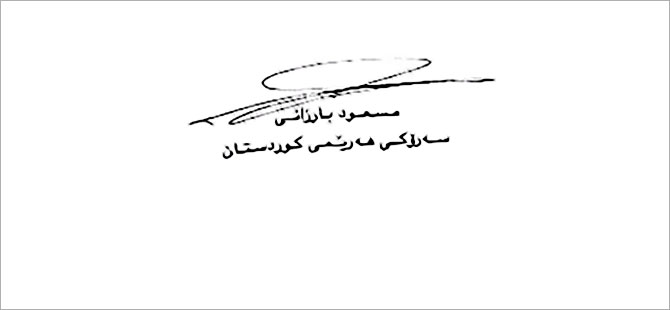 مسعود بارزانی
سەرۆکی هەرێمی کوردستان